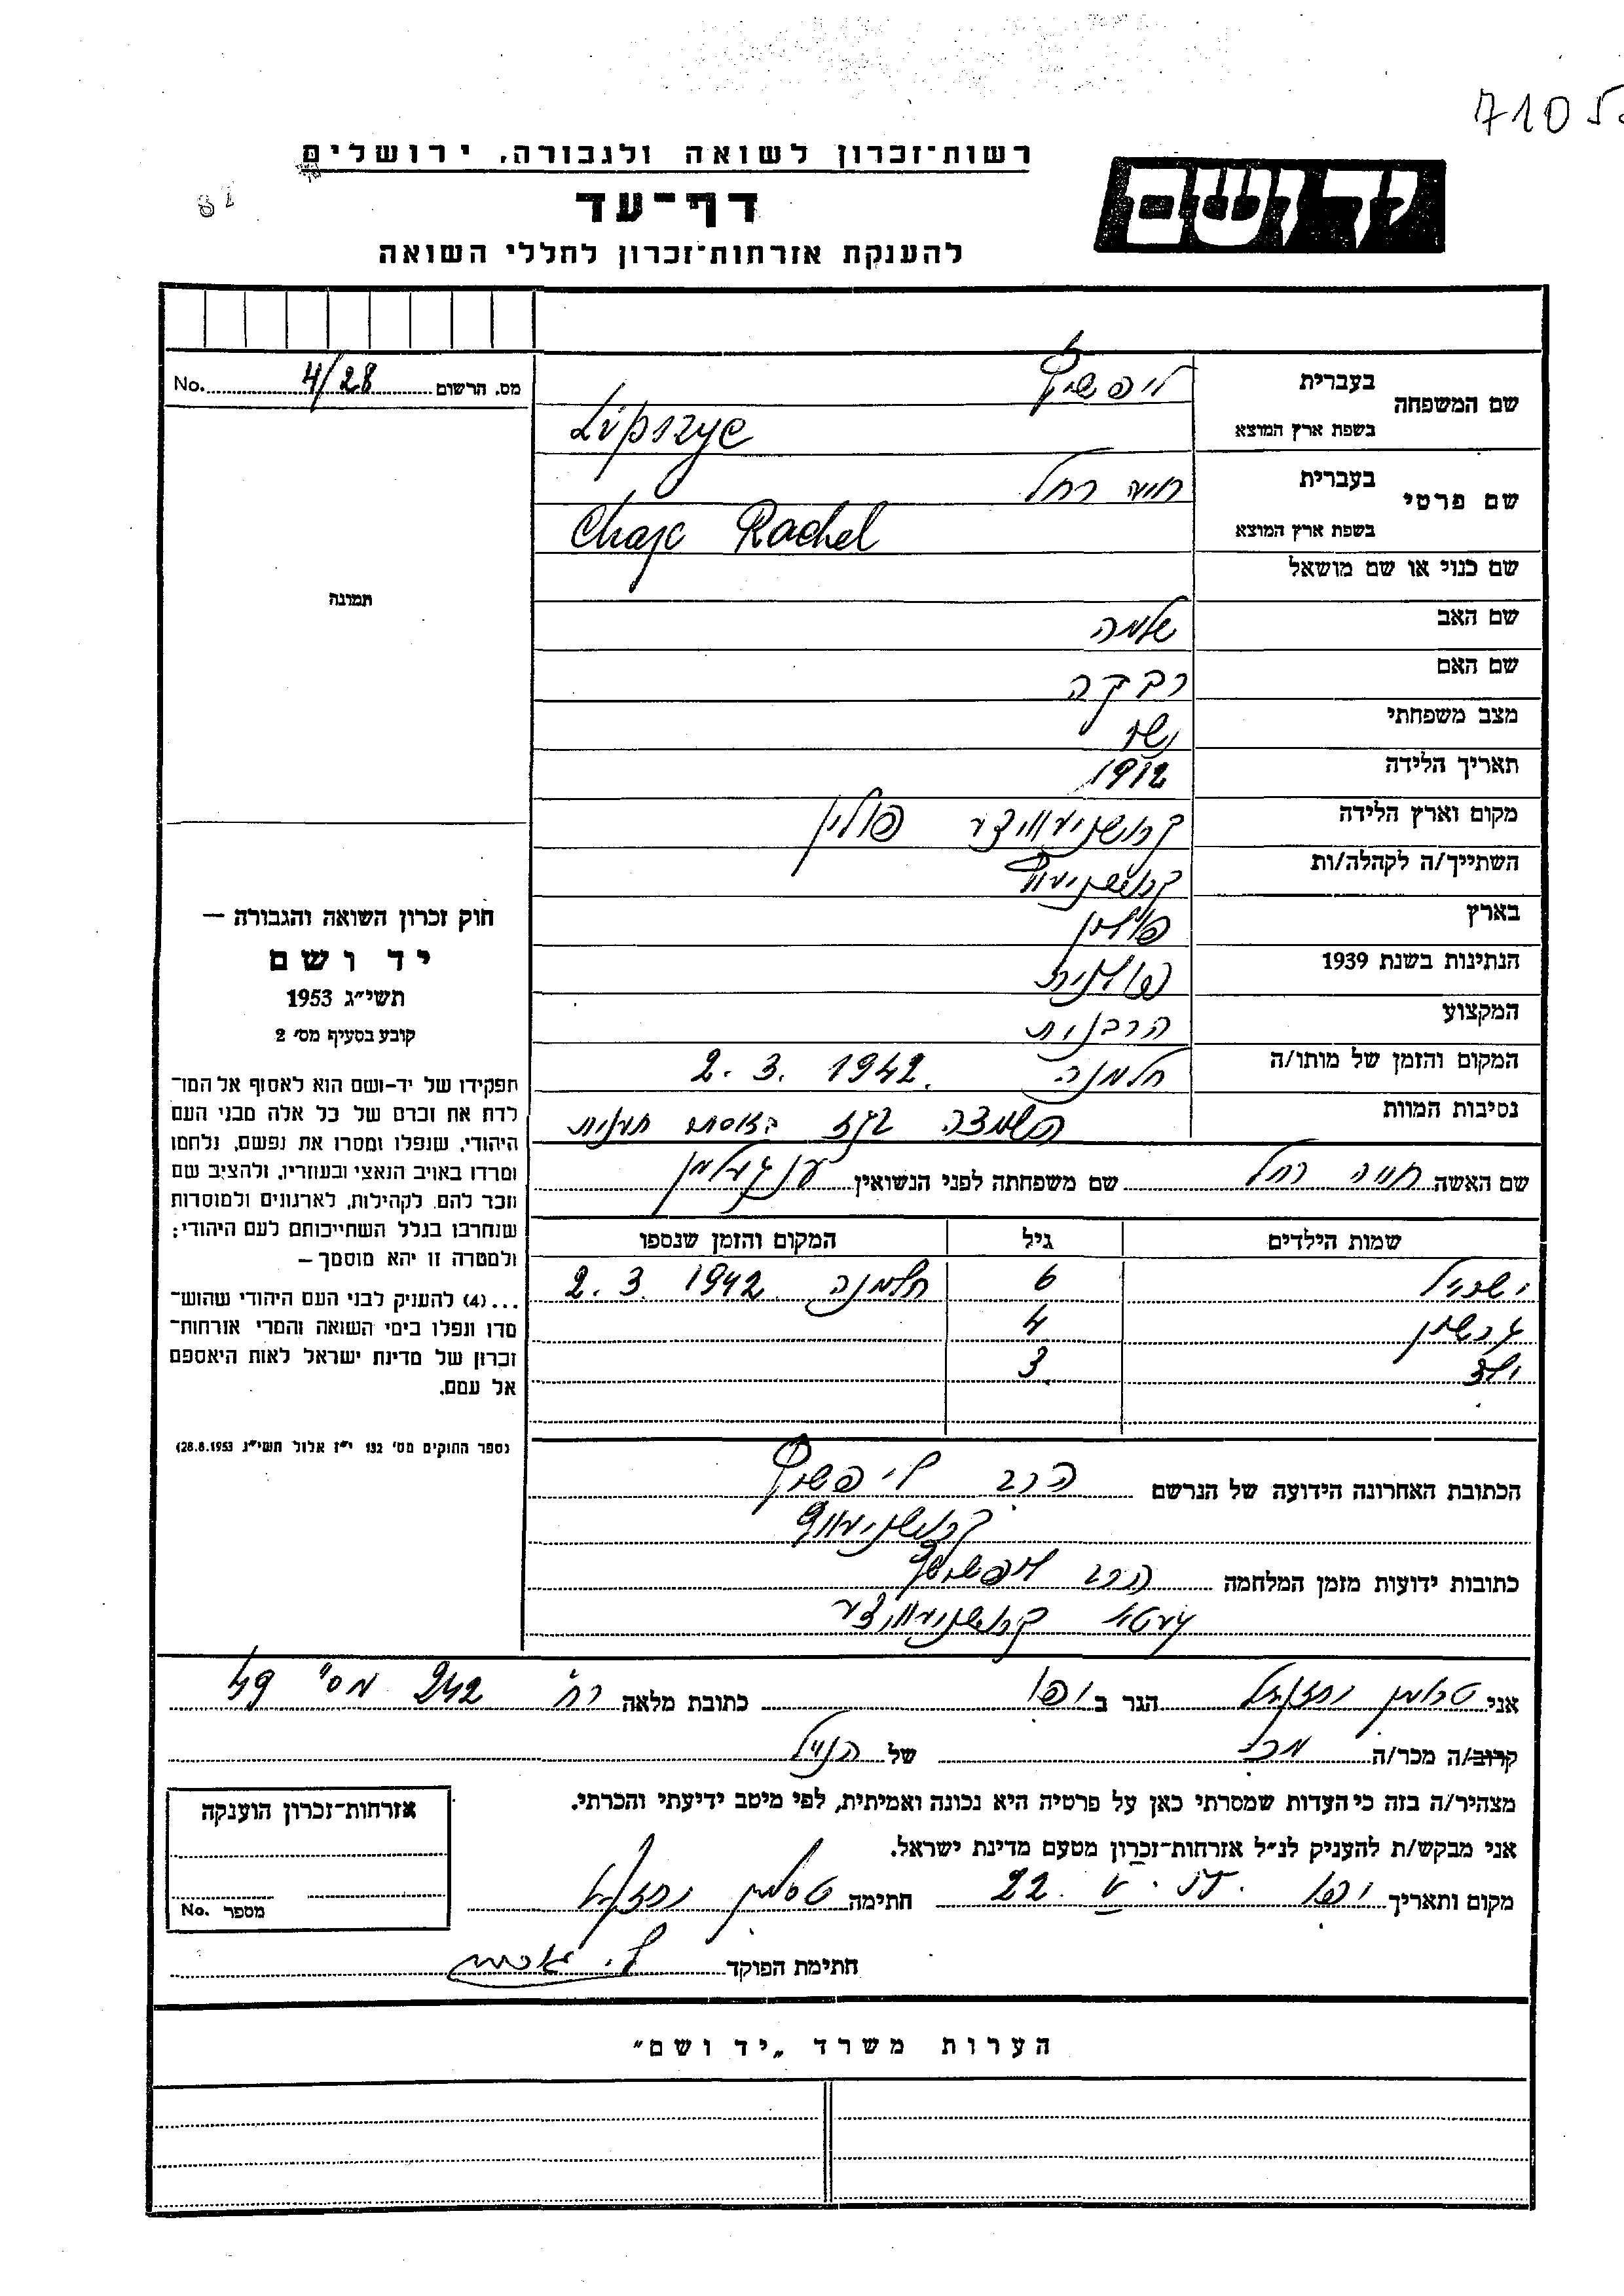 710
רשות־זכרון לשואה ולגבורה, ירושלים
יד ושם
דף־עד
להענקת אזרחות־זכרון לחללי השואה
No. 4/28 מס. הרשום
תמונה
חוק זכרון השואה והגבורה —
יד ושם
תשי״ג 1953
קובע בסעיף מס׳ 2
תפקידו של יד־ושם הוא לאסוף אל המו־
לדת את זכרם של כל אלה מבני העם
היהודי, שנפלו ומסרו את נפשם, נלחמו
ומרדו באויב הנאצי ובעוזריו, ולהציב שם
וזכר להם, לקהילות, לארגונים ולמוסדות
שנחרבו בגלל השתייכותם לעם היהודי;
ולמטרה זו יהא מוסמך —
...(4) להעניק לבני העם היהודי שהוש־
מדו ונפלו בימי השואה והמרי אזרחות־
זכרון של מדינת ישראל לאות היאספם
אל עמם.
(ספר החוקים מס׳ 132 י״ז אלול תשי״ג 28.8.1953)
שם המשפחה בעברית ליפשיץ
בשפת ארץ המוצא Lipszyc
שם פרטי בעברית חיה רחל
בשפת ארץ המוצא Chaja Rachel
שם כנוי או שם מושאל
שם האב שלמה
שם האם רבקה
מצב משפחתי נשוי
תאריך הלידה 1912
מקום וארץ הלידה קרושניעוויצע פולין
השתייך/ה לקהלה/ות קרושניעוויץ
בארץ פולין
הנתינות בשנת 1939 פולנית
המקצוע הרבנית
המקום והזמן של מותו/ה חלמנה 2. 3. 1942.
נסיבות המוות הושמדה בגז
שם האשה חיה רחל שם משפחתה לפני הנשואין
שמות הילדים גיל המקום והזמן שנספו
6 חלמנה 1942 3. 2.
גרשון 4
ילד 3
הכתובת האחרונה הידועה של הנרשם הרב ליפשיץ
קרושניעוויץ
כתובות ידועות מזמן המלחמה הרב ליפשיץ
געטא קרושניעוויצע
אני יחזקאל הגר ב יפו כתובת מלאה רח׳ 242 מס׳ 49
קרוב/ה מכר/ה מכר של הנ״ל
מצהיר/ה בזה כי העדות שמסרתי כאן על פרטיה היא נכונה ואמיתית, לפי מיטב ידיעתי והכרתי.
אני מבקש/ת להעניק לנ״ל אזרחות־זכרון מטעם מדינת ישראל.
מקום ותאריך יפו 22. חתימה יחזקאל
חתימת הפוקד
אזרחות־זכרון הוענקה
No. מספר
הערות משרד „יד ושם״